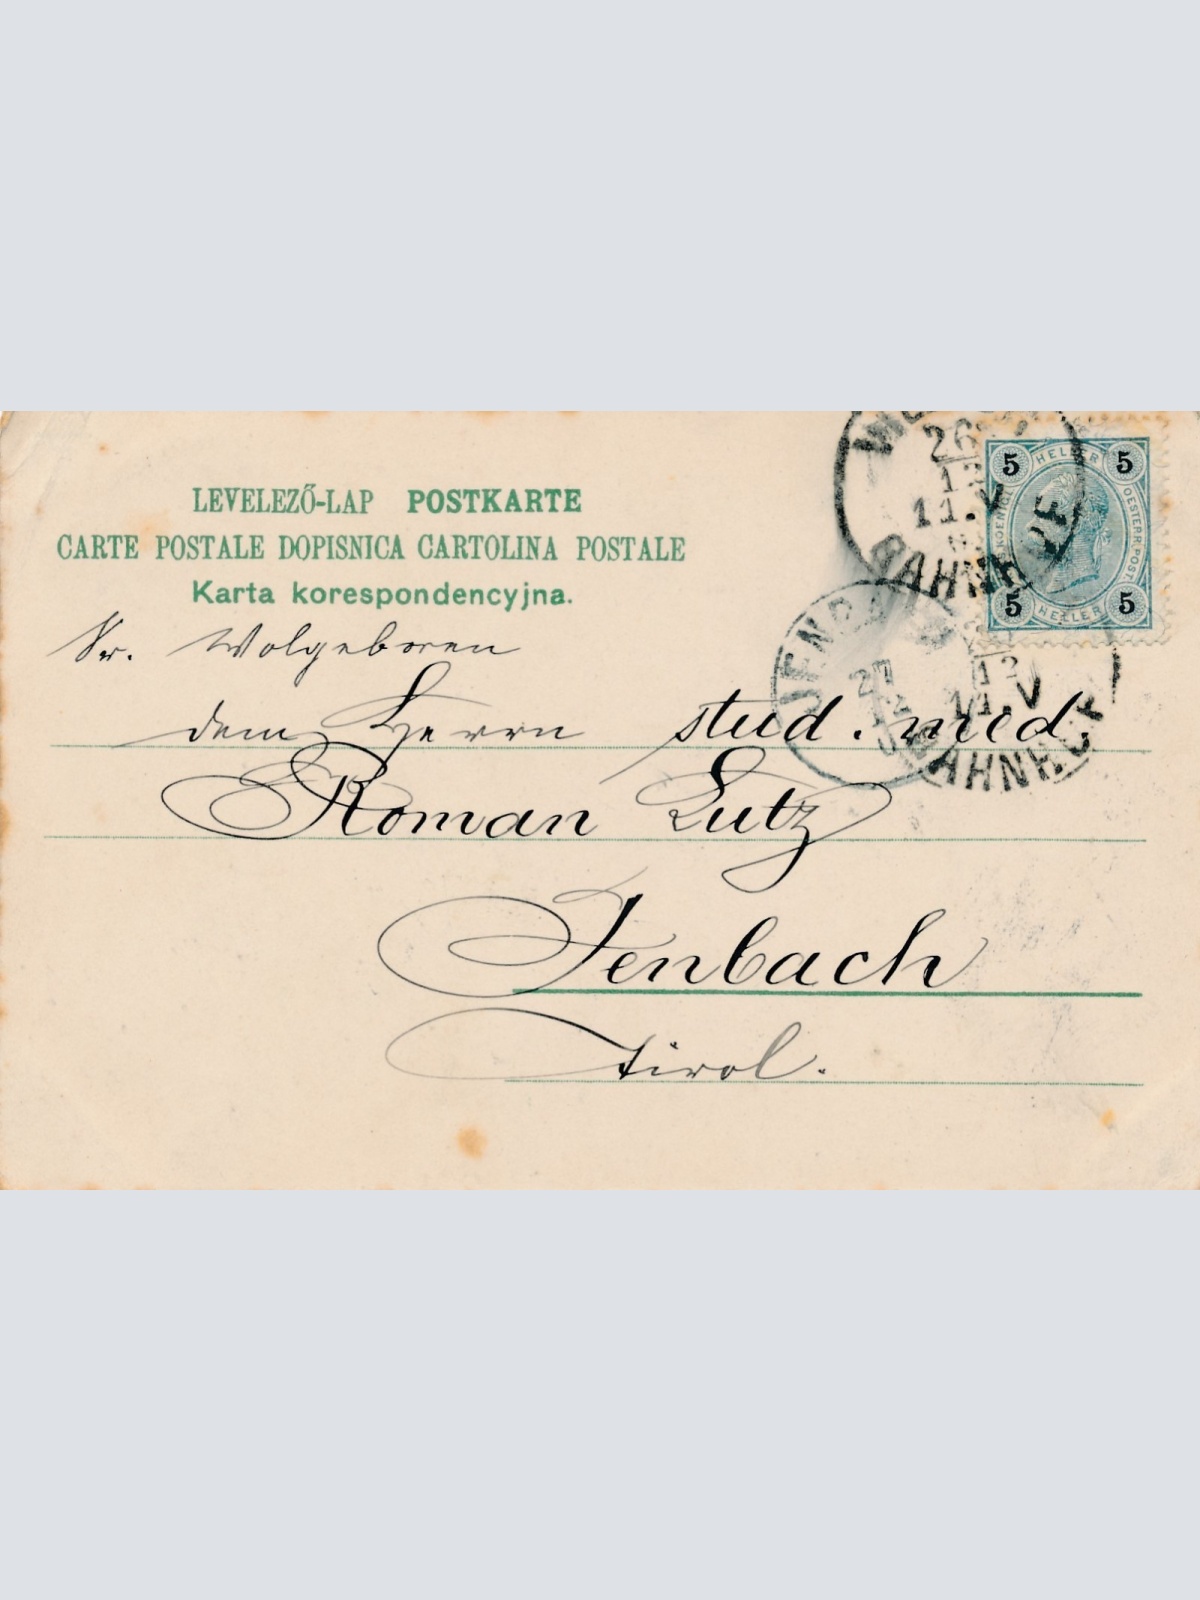 LEVELEZŐ-LAP POSTKARTE
CARTE POSTALE DOPISNICA CARTOLINA POSTALE
Karta korespondencyjna.
Sr. Wolgeboren
dem Herrn stud. med.
Roman Lutz
Jenbach
Tirol.
5 HELLER 5
OESTERR. POST.
5 HELLER 5
26
12
11.V
BAHNHOF
JENBACH
27
12
11.V
BAHNHOF